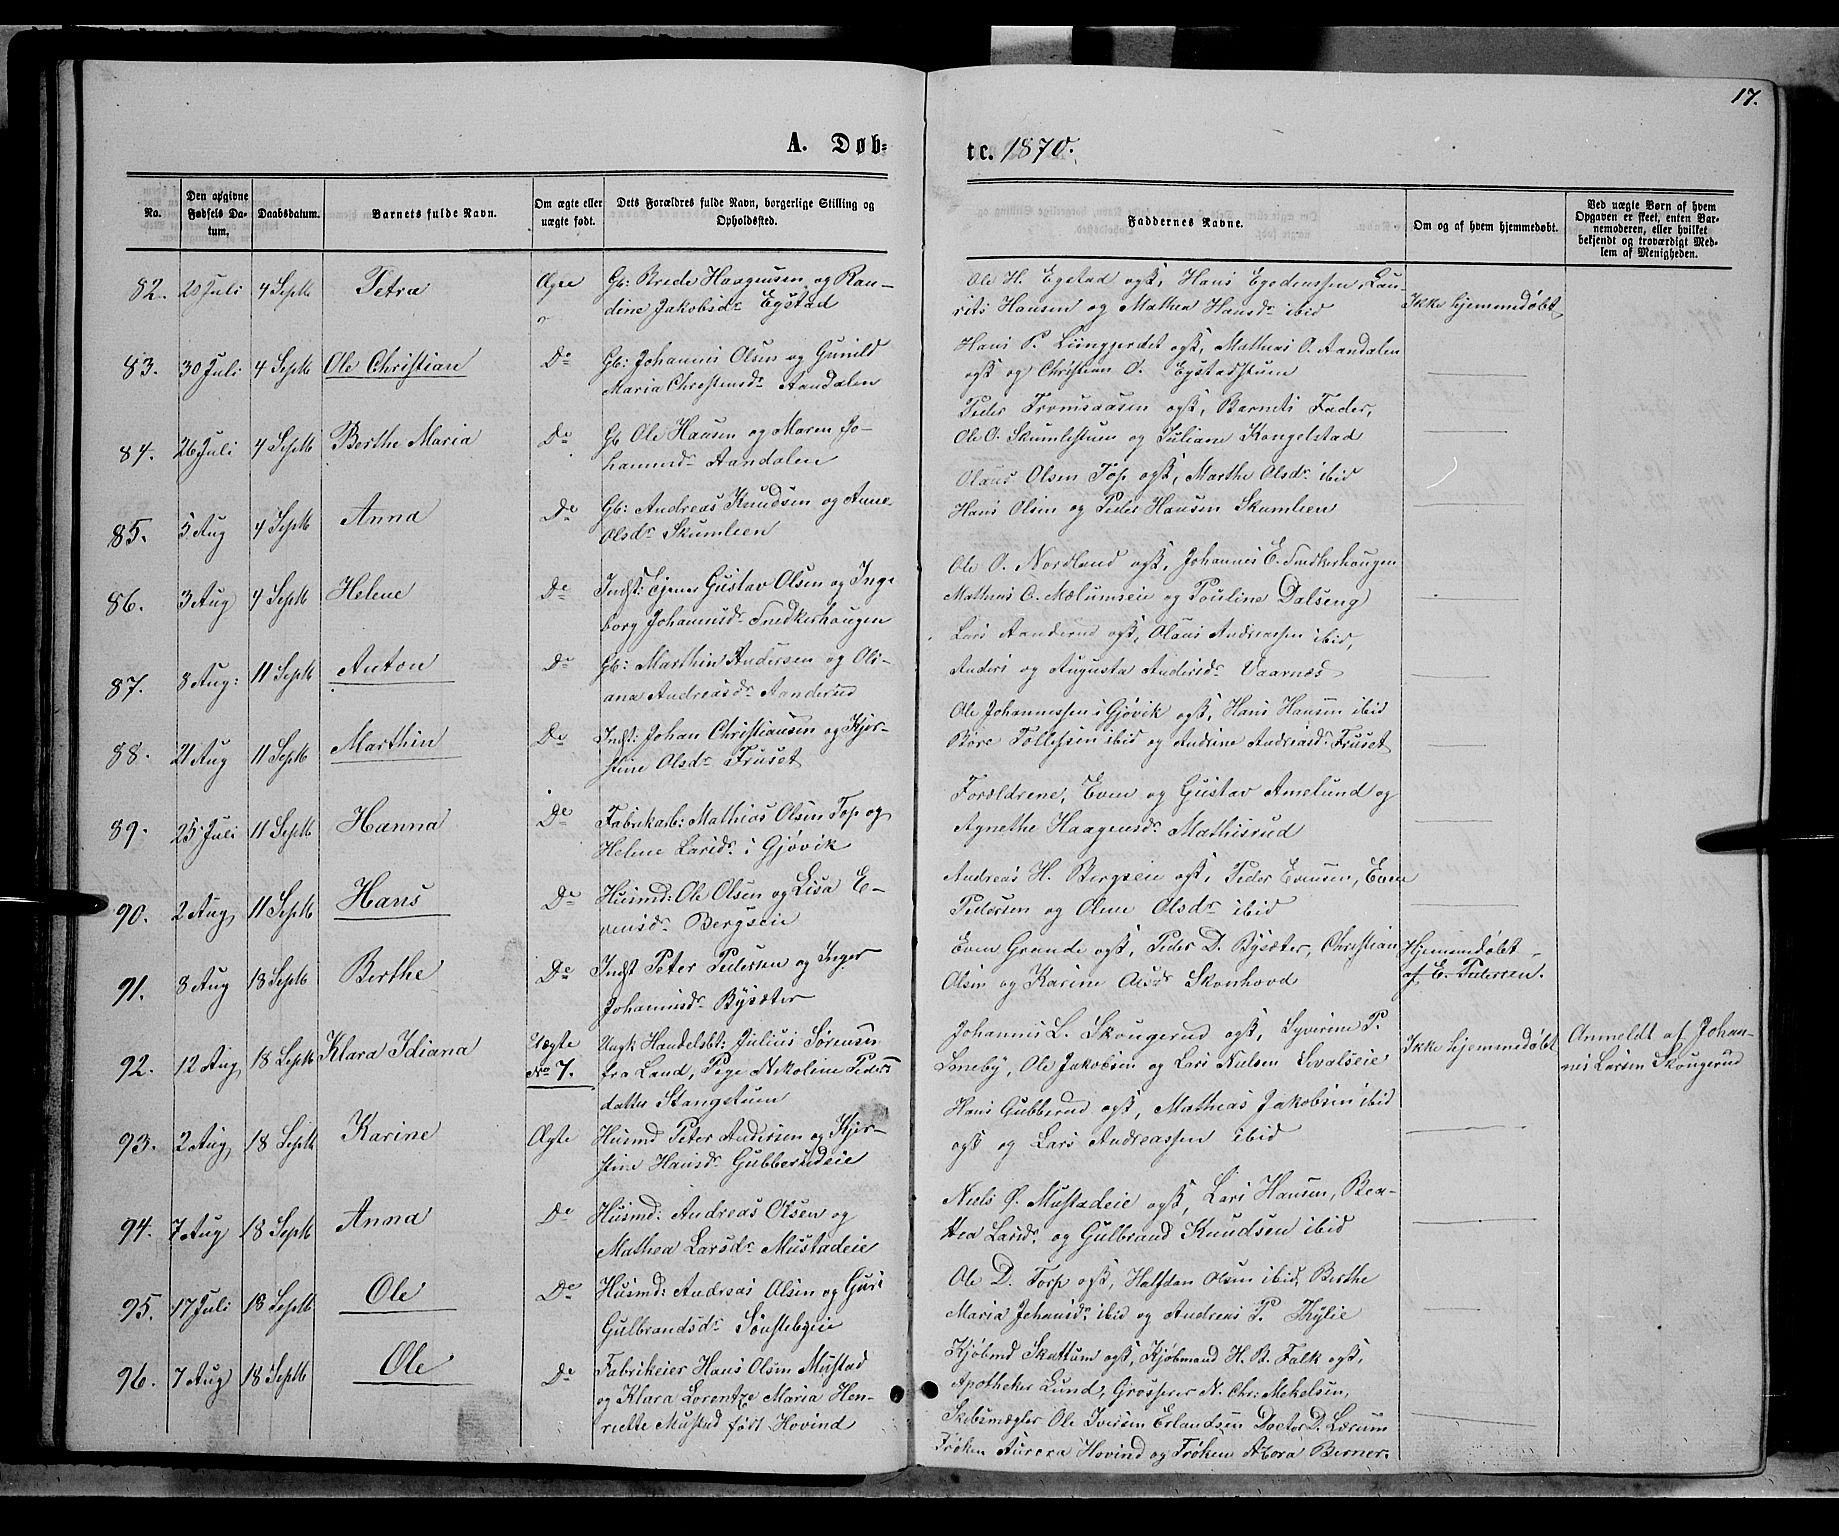 17.
A. Døb- te. 1870.
No.
Den opgivne Fødsels Datum.
Daabsdatum.
Barnets fulde Navn.
Om ægte eller uægte født.
Dets Forældres fulde Navn, borgerlige Stilling og Opholdssted.
Faddernes Navne.
Om og af hvem hjemmedøbt.
Ved uægte Børn af hvem Opgaven er skeet, enten Barnemoderen, eller hvilket bekjendt og troværdigt Medlem af Menigheden.
82. 20 Juli 4 Septb Petra Ægte Gb: Brede Haagensen og Ran-
dine Jakobsdr Egstad
Ole H. Egstad ogst, Hans Egedenssen, Lau-
rits Hansen og Mathea Hansdr ibid
Ikke hjemmedøbt
83. 30 Juli 4 Septb Ole Christian Do Gb: Johannes Olsen og Gunild
Maria Christensdr Aandalen
Hans P. Liunggerdet ogst, Mathias O. Aandalen
ogst og Christian O. Egstadstuen
84. 26 Juli 4 Septb Berthe Maria Do Gb Ole Hansen og Maren Jo-
hannesdr Aandalen
Peder Tromsaasen ogst, Barnets Fader,
Ole O. Skumlestuen og Juliane Kongelstad
85. 5 Aug 4 Septb Anna Do Gb: Andreas Knudsen og Anne
Olsdr Skumlien
Olaus Olsen Top ogst, Marthe Olsdr ibid
Hans Olsen og Peder Hansen Skumlien
86. 3 Aug 4 Septb Helene Do Indst: Ejener Gustav Olsen og Inge
borg Johannesdr Snedkerhaugen
Ole O. Nordland ogst, Johannes E. Snedkerhaugen
Mathias O. Mælumseie og Pouline Dalseng
87. 8 Aug: 11 Septb Anton Do Gb: Marthin Andersen og Oli-
ana Andreasdr Aanderud
Lars Aanderud ogst, Olaus Andreassen ibid,
Anders og Augusta Andersdr Vaarnæs
88. 21 Aug 11 Septb Marthin Do Indst: Johan Christiansen og Kjer-
stine Olsdr Fruset
Ole Johannessen i Gjøvik ogst, Hans Hansen ibid
Bore Tollefsen ibid og Andrine Andreasdr Fruset
89. 25 Juli 11 Septb Hanna Do Fabrikarb: Mathias Olsen Top og
Helene Larsdr i Gjøvik
Forældrene, Even og Gustav Amelund og
Agnethe Haagensdr Mathisrud
90. 2 Aug, 11 Septb Hans Do Husmd: Ole Olsen og Lisa E-
vensdr Bergseie
Andreas H. Bergseie ogst, Peder Evensen, Even
Pedersen og Olene Olsdr ibid
91. 8 Aug 18 Septb Berthe Do Indst Peter Pedersen og Inger
Johannesdr Bysæter
Even Grande ogst, Peder D. Bysæter, Christian
Olsen og Karine Olsdr Skonhovd
Hjemmedøbt
af E. Pedersen.
92. 12 Aug, 18 Septb Klara Idiana Uægte No 7. Ungk Handelsbt: Julius Sørensen
fra Land, Pige Nikoline Peders
datter Stangstuen
Johannes L. Skougerud ogst, Syverine P.
Smeby, Ole Jakobsen og Lars Nielsen Svalseie
Ikke hjemmedøbt
Anmeldt af Johan-
nes Larsen Skougerud
93. 2 Aug, 18 Septb Karine Ægte Husmd Peter Andersen og Kjer-
stine Hansdr Gubberudeie
Hans Gubberud ogst, Mathias Jakobsen ibid
ogst og Lars Andreassen ibid
94. 7 Aug 18 Septb Anna Do Husmd: Andreas Olsen og
Mathea Larsdr Mustadeie
Niels Ø. Mustadeie ogst, Lars Hansen, Bea-
tea Larsdr og Gulbrand Knudsen ibid
95. 17 Juli 18 Septb Ole Do Husmd: Andreas Olsen og Guri
Gulbrandsdr Sønstebyeie
Ole D. Torp ogst, Halfdan Olsen ibid, Berthe
Maria Johansdr ibid og Andreas P. Kylie
96. 7 Aug 18 Septb Ole Do Fabrikeier Hans Olsen Mustad
og Klara Lorentze Maria Hen-
riette Mustad født Hovind
Kjøbmd Skattum ogst, Kjøbmand H. B. Falk ogst,
Apotheker Lund, Grosserer N. Chr: Mekelsen,
Skibsmægler Ole Iversen Erlandsen Doctor D. Lærum
Frøken Aurora Hovind og Frøken Thora Berner.